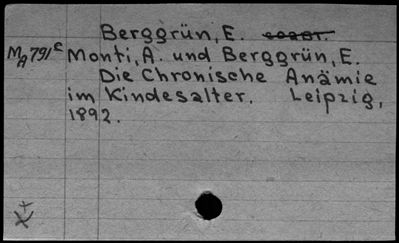 Berggrün, E.
MA791c Monti, A. und Berggrün, E.
Die Chronische Anämie
im Kindesalter. Leipzig,
1892.